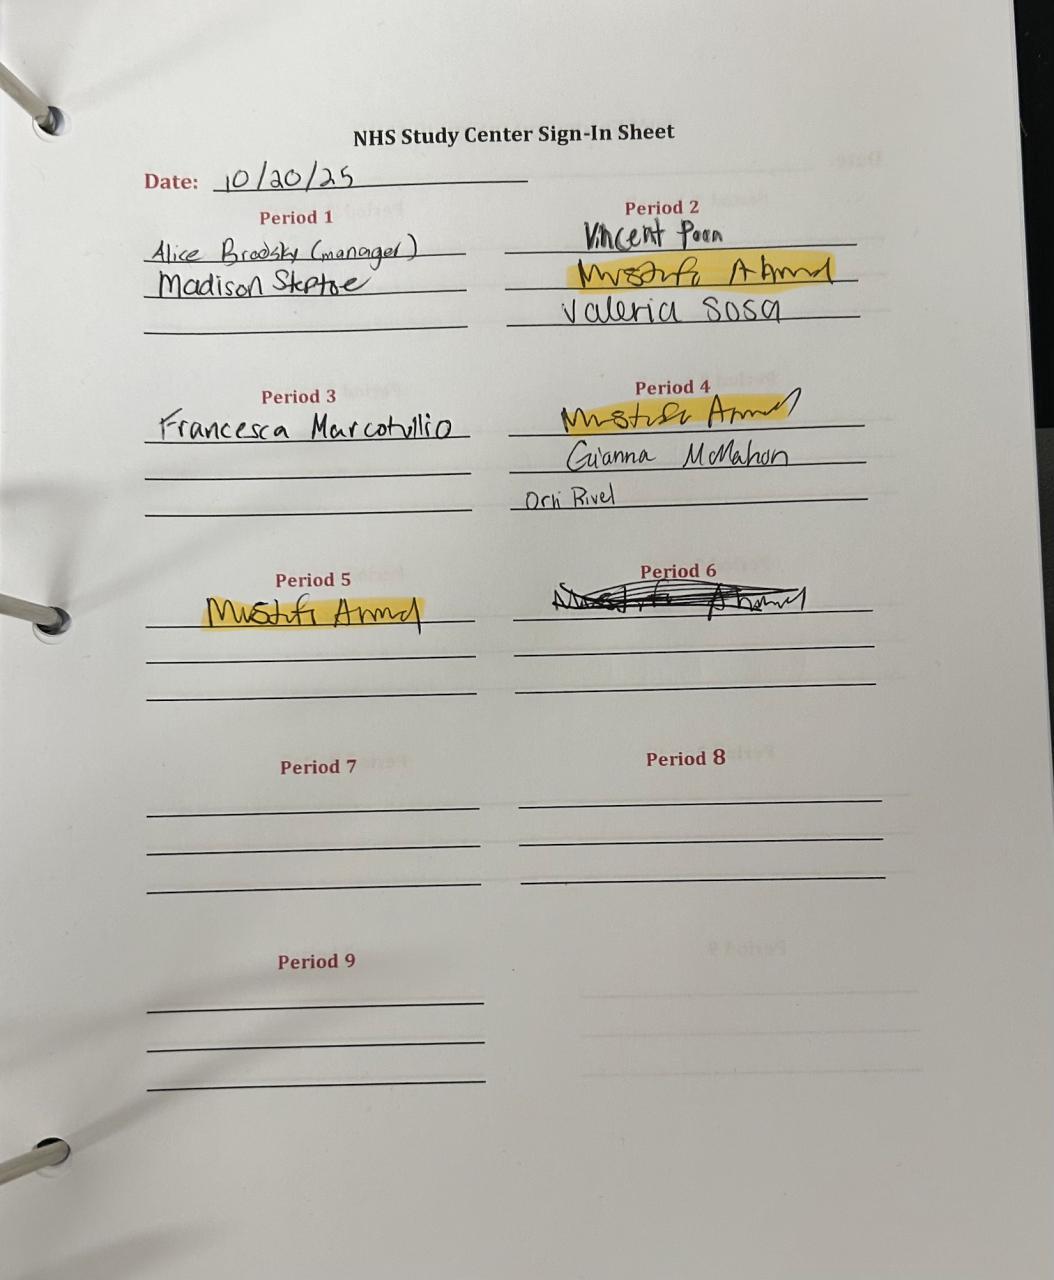 NHS Study Center Sign-In Sheet
Date: 10/20/25
Period 1
Alice Brodsky (manager)
Madison Steptoe
Period 2
Vincent Poon
Ahmed
Valeria Sosa
Period 3
Francesca Marcotullio
Period 4
Gianna McMahon
Orli Rivel
Period 5
Period 6
Period 7
Period 8
Period 9